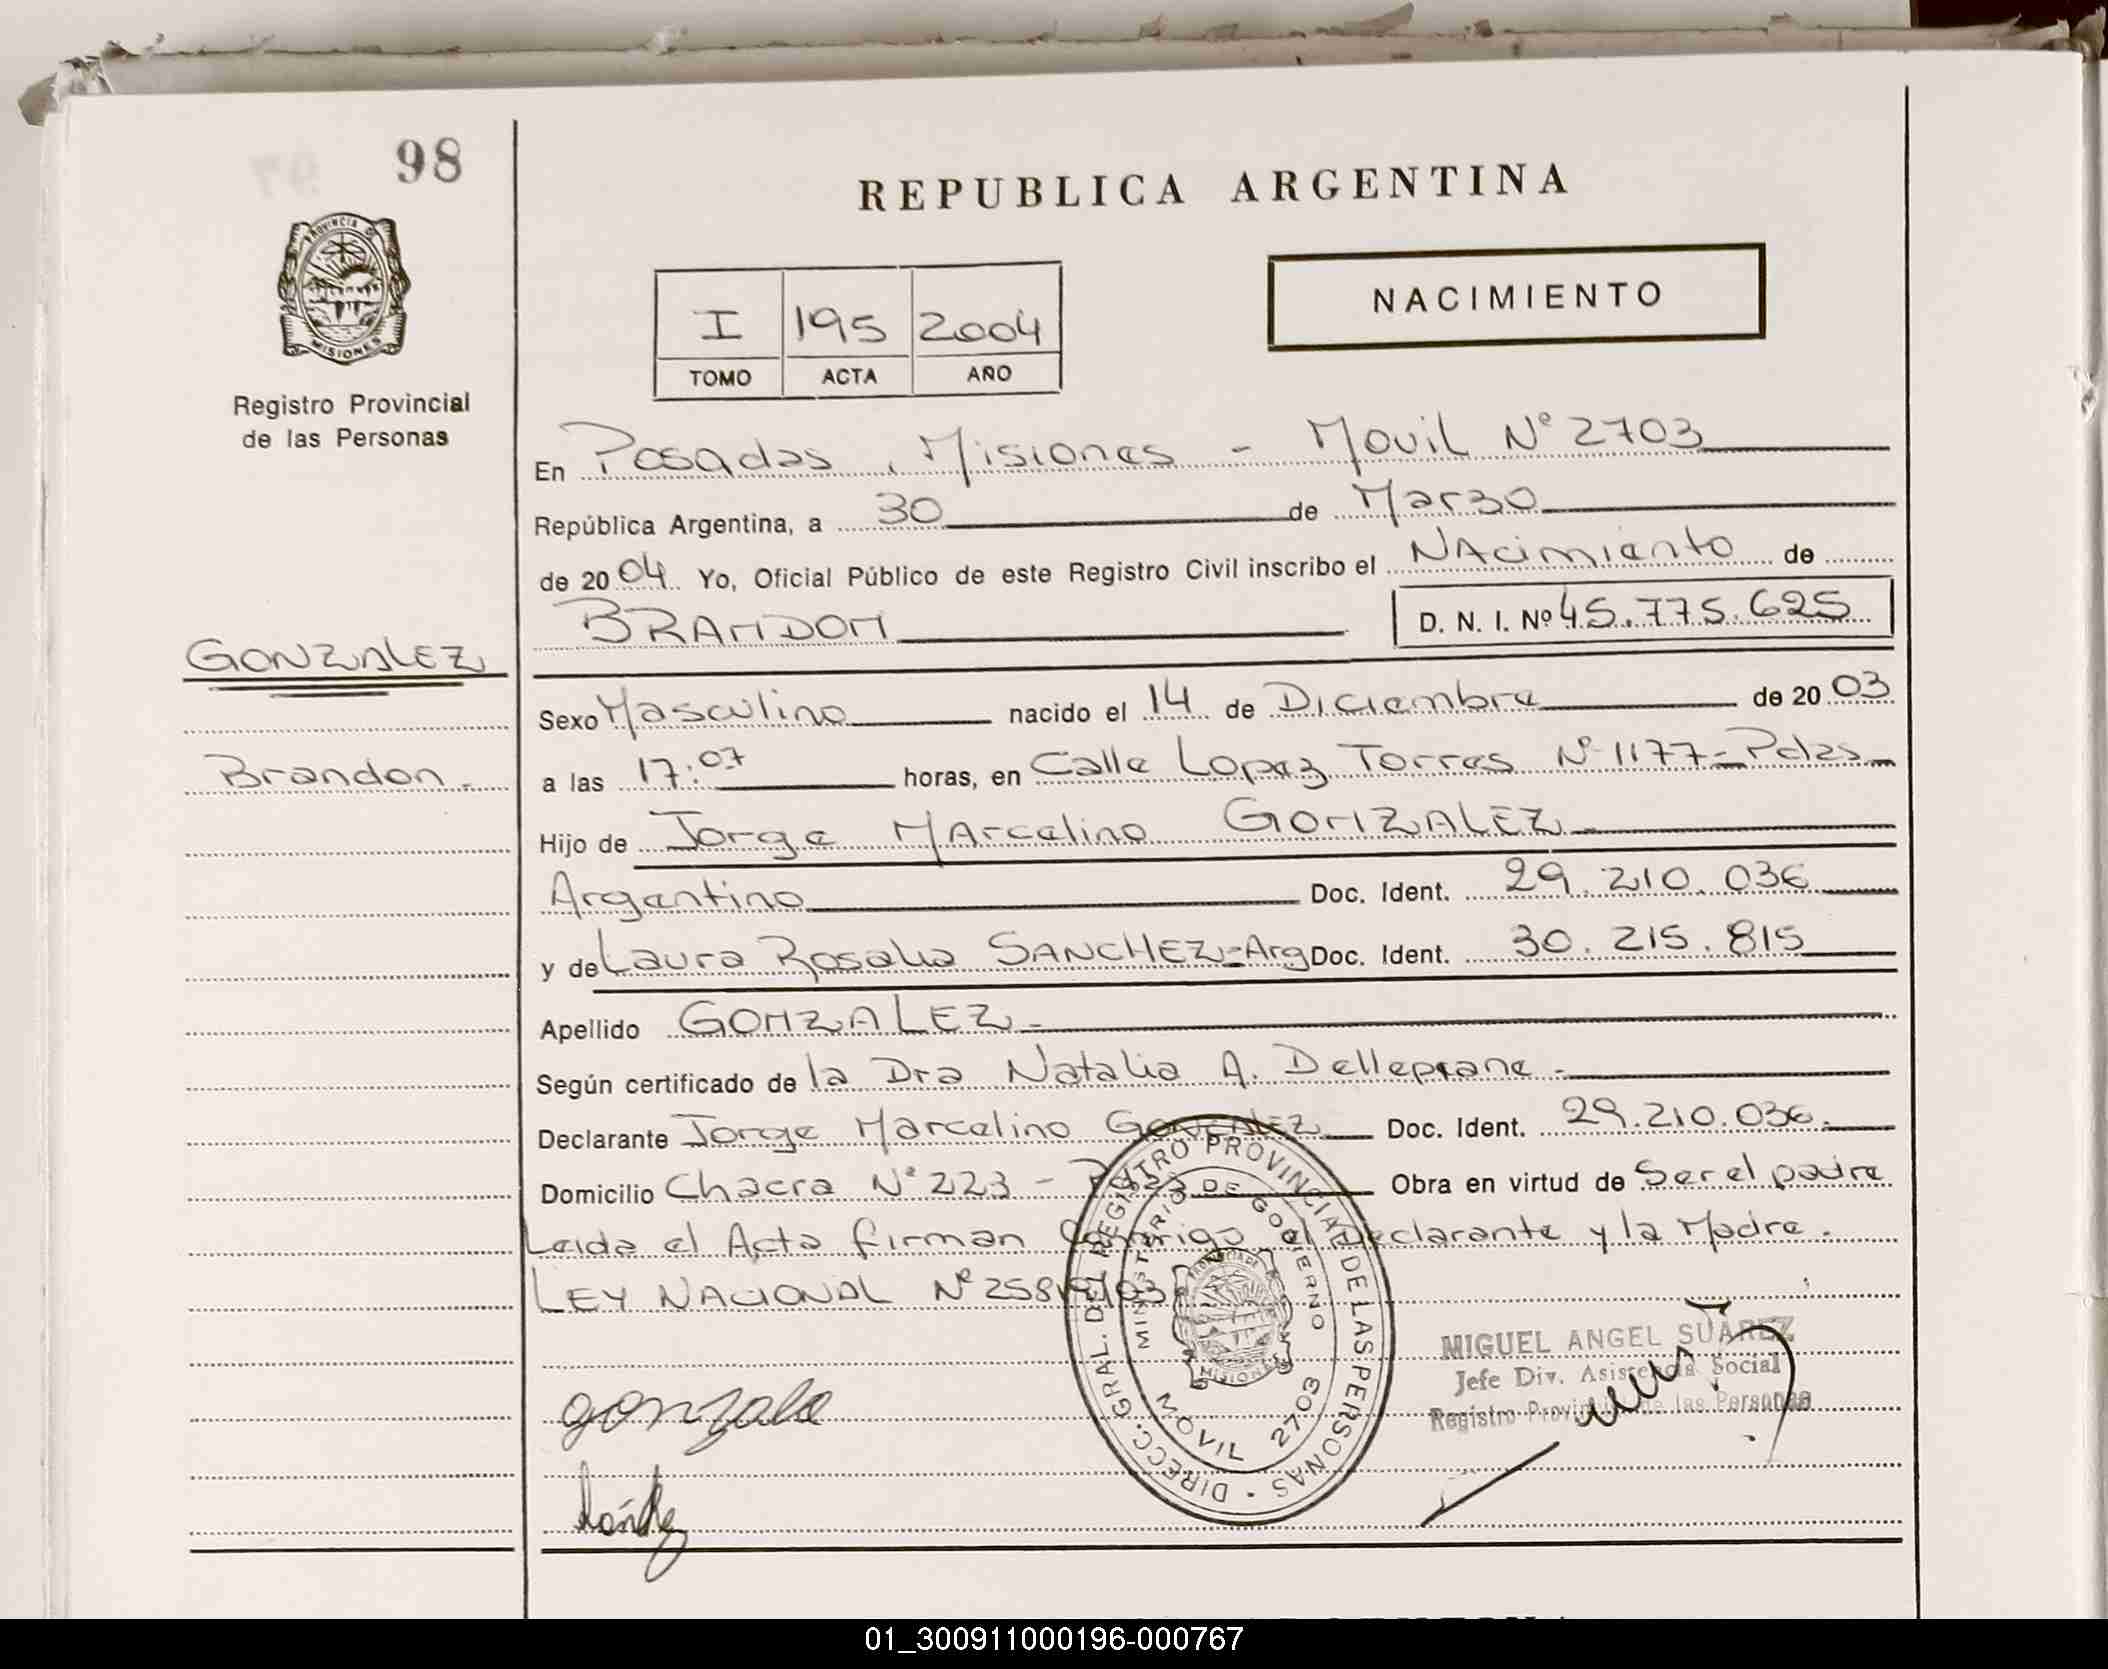 98
REPUBLICA ARGENTINA
NACIMIENTO
I 195 2004
TOMO ACTA AÑO
PROVINCIA DE MISIONES
Registro Provincial
de las Personas
En Posadas, Misiones - Movil Nº 2703
República Argentina, a 30 de Marzo
de 2004 Yo, Oficial Público de este Registro Civil inscribo el NAcimiento de
BRANDON D. N. I. Nº 45.775.625
GONZALEZ
Brandon.
Sexo Masculino nacido el 14 de Diciembre de 2003
a las 17:07 horas, en Calle Lopez Torres Nº 1177 - Pdas
Hijo de Jorge MArcelino GONZALEZ
Argentino Doc. Ident. 29.210.036
y de Laura Rosalia SANCHEZ-Arg Doc. Ident. 30.215.815
Apellido GONZALEZ-
Según certificado de la Dra Natalia A. Delleprane-
Declarante Jorge Marcelino GONZALEZ Doc. Ident. 29.210.036.
Domicilio Chacra Nº 223 - Obra en virtud de Ser el padre
Leida el Acta firman Conmigo el Declarante y la Madre.
LEY NACIONAL Nº 25819/03
DIRECC. GRAL. DEL REGISTRO PROVINCIAL DE LAS PERSONAS
MINISTERIO DE GOBIERNO
MOVIL 2703
MISIONES
MIGUEL ANGEL SUAREZ
Jefe Div. Asistencia Social
Registro Provincial de las Personas
gonzale
01_300911000196-000767